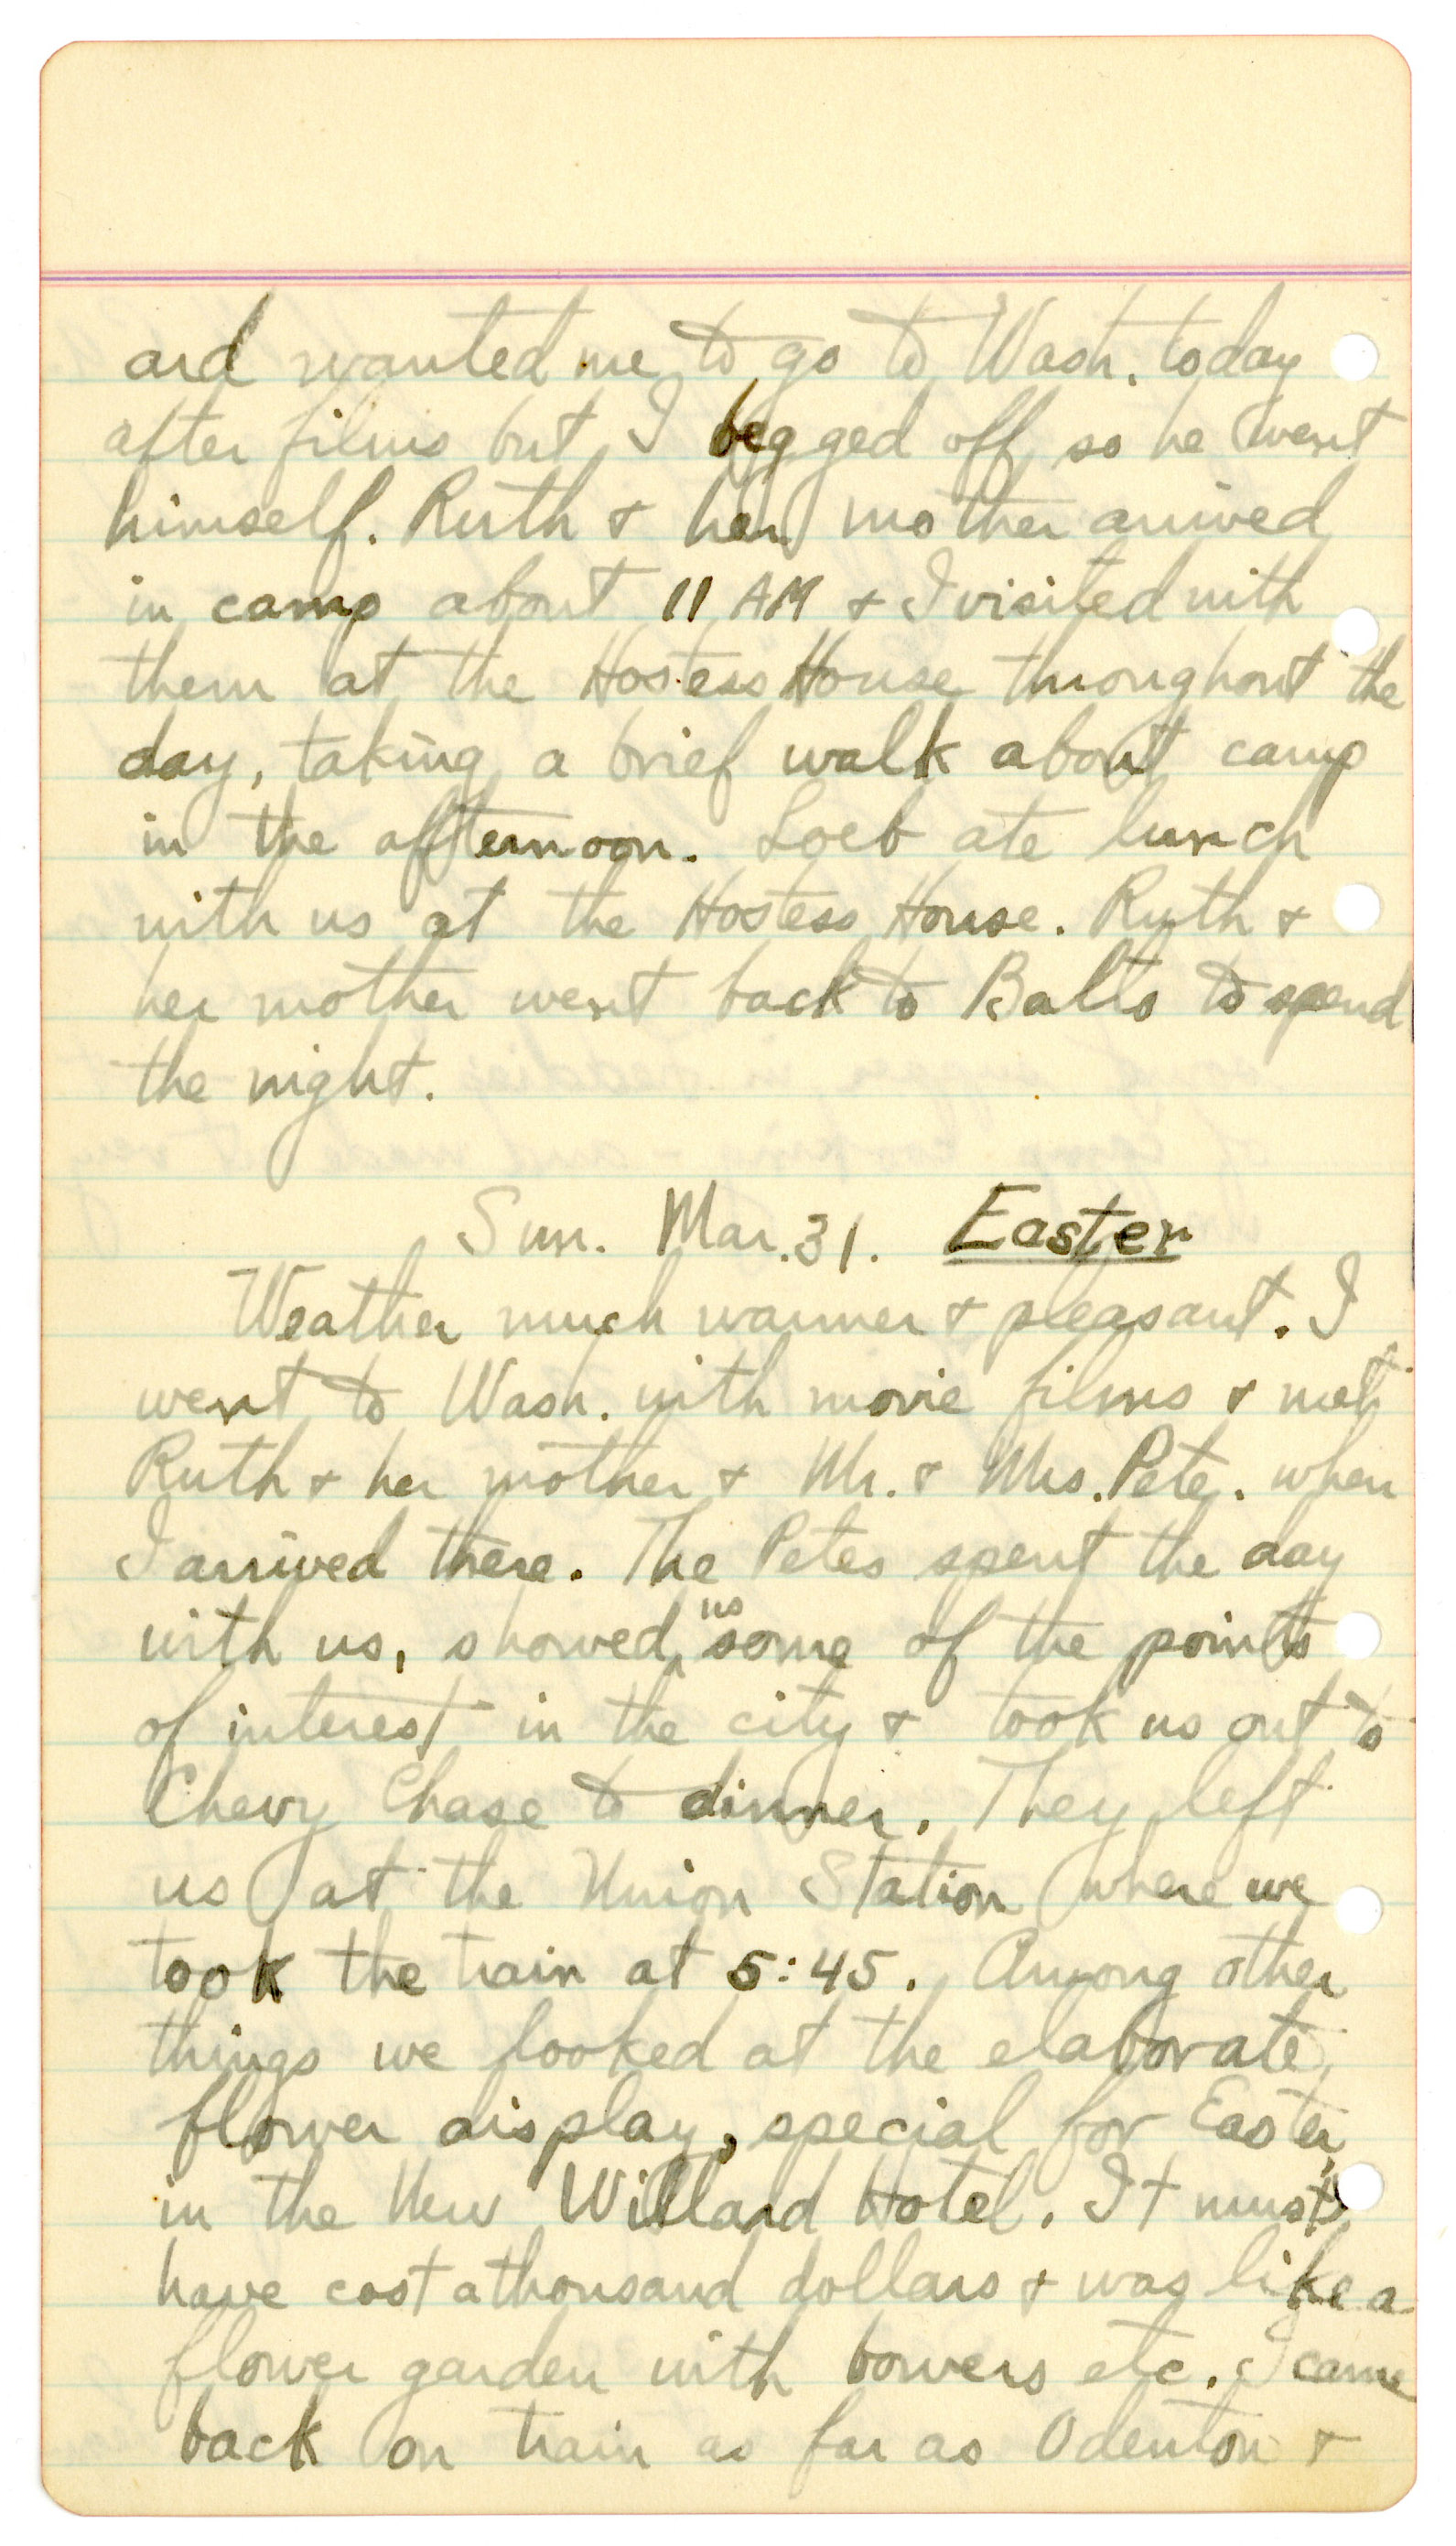 and wanted me to go to Wash. today
after films but I begged off so he went
himself. Ruth & her mother arrived
in camp about 11 AM & I visited with
them at the Hostess House throughout the
day, taking a brief walk about camp
in the afternoon. Loeb ate lunch
with us at the Hostess House. Ruth &
her mother went back to Balto to spend
the night.
Sun. Mar. 31. Easter
Weather much warmer & pleasant. I
went to Wash. with movie films & met
Ruth & her mother & Mr. & Mrs. Pete. when
I arrived there. The Petes spent the day
with us, showed us some of the points
of interest in the city & took us out to
Chevy Chase to dinner. They left
us at the Union Station where we
took the train at 5:45. Among other
things we looked at the elaborate
flower display, special for Easter,
in the New Willard Hotel. It must
have cost a thousand dollars & was like a
flower garden with bowers etc. I came
back on train as far as Odenton &